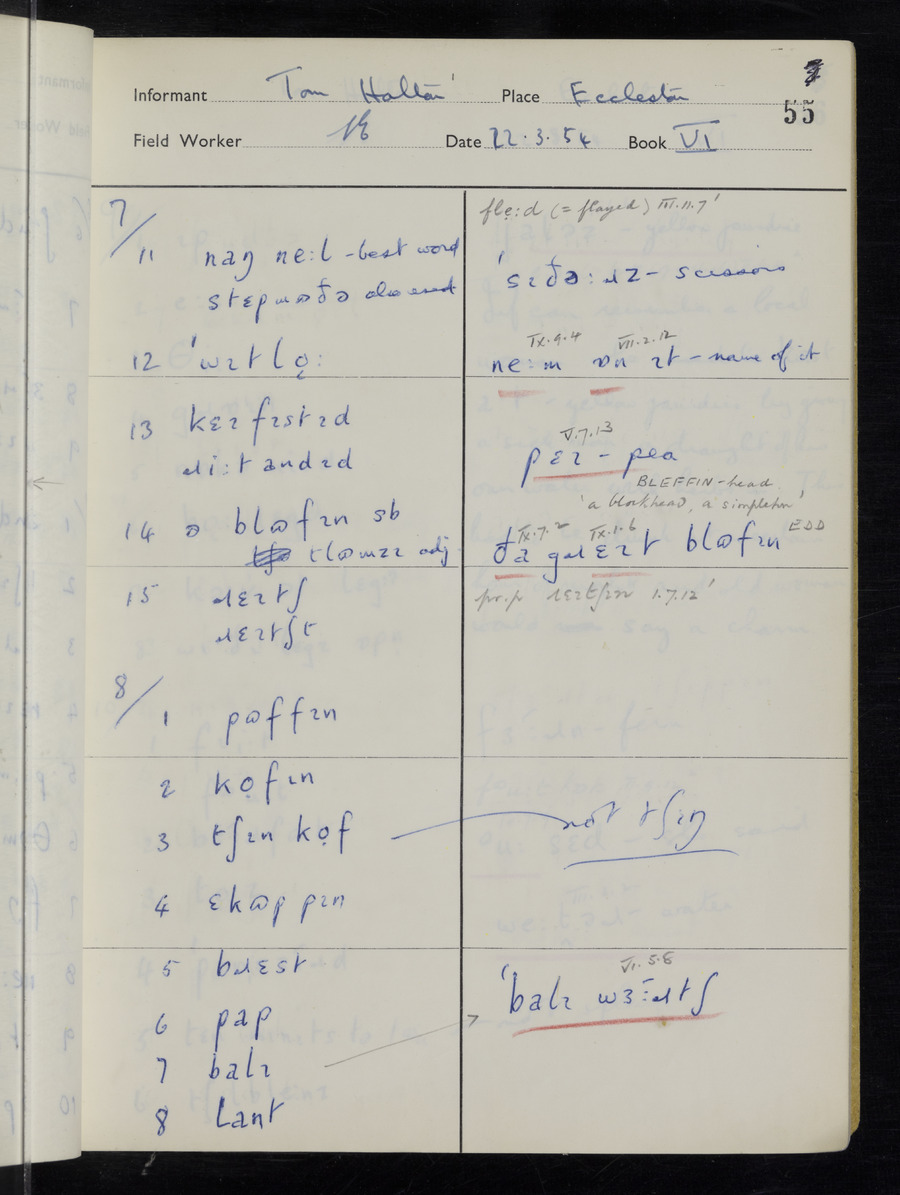 55
Informant Tom Halton Place Eccleston
Field Worker Date 22.3.54 Book VI
7/
11 naŋ nɛ:l - best word
stɛp also used
12 ˈwɪtlọ:
13 kɛɪfɪstɪd
ɹi:tandɪd
14 ə blɷfɪn sb
tlɷmzɪ adj
15 ɹɛɪtʃ
ɹɛɪtʃt
8/
1 pɷffɪn
2 kọfɪn
3 tʃɪn kọf
4 ɛkɷp pɪn
5 bɹɛst
6 pap
7 balɪ
8 lant
flẹ:d (= flayed) III.11.7'
- scissors
IX.9.4 VII.2.12
ne:m ɒn ɪt - name of it
V.7.13
pɛɪ - pea
BLEFFIN-head
'a blockhead, a simpleton'
IX.7.2 IX.1.6 EDD
ðə gɹɛɪt blɷfɪn
pr.p ɹɛɪtʃɪn 1.7.12'
not tʃɪŋ
VI.5.8
ˈbalɪ wɜ:ɹtʃ